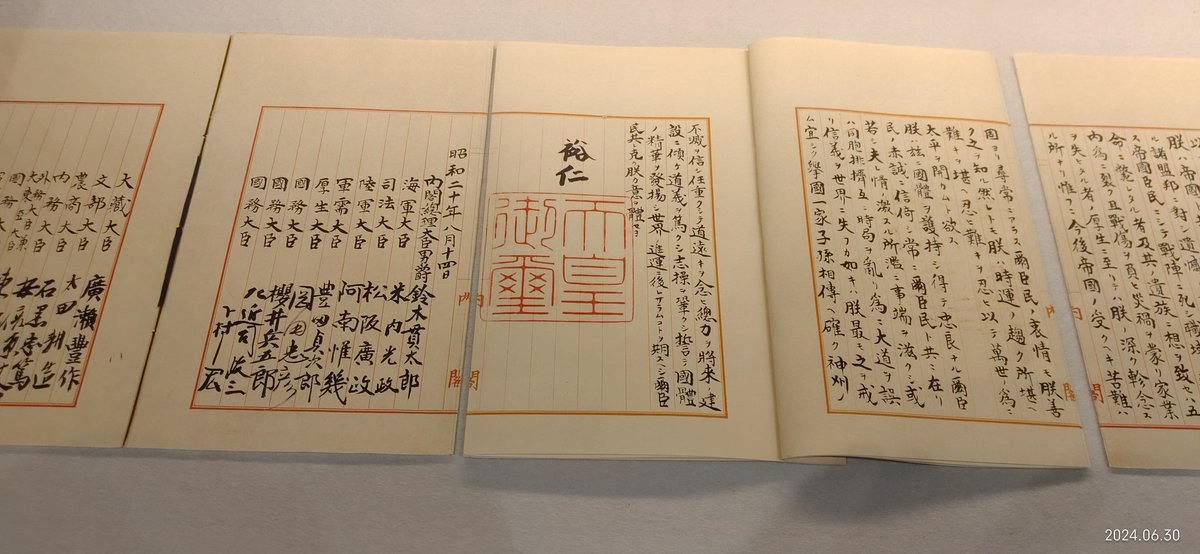 ル諸盟邦ニ對シ遺憾
ス帝國臣民ニシテ戰陣ニ死シ職域
命ニ斃レタル者及其ノ遺族ニ想ヲ致セハ五
内爲ニ裂ク且戰傷ヲ負ヒ災禍ヲ蒙リ家業
ヲ失ヒタル者ノ厚生ニ至リテハ朕ノ深ク軫念ス
ル所ナリ惟フニ今後帝國ノ受クヘキ苦難ハ
内閣
固ヨリ尋常ニアラス爾臣民ノ衷情モ朕善
ク之ヲ知ル然レトモ朕ハ時運ノ趨ク所堪ヘ
難キヲ堪ヘ忍ヒ難キヲ忍ヒ以テ萬世ノ爲ニ
太平ヲ開カムト欲ス
朕ハ茲ニ國體ヲ護持シ得テ忠良ナル爾臣
民ノ赤誠ニ信倚シ常ニ爾臣民ト共ニ在リ
若シ夫レ情ノ激スル所濫ニ事端ヲ滋クシ或
ハ同胞排擠互ニ時局ヲ亂リ爲ニ大道ヲ誤
リ信義ヲ世界ニ失フカ如キハ朕最モ之ヲ戒
ム宜シク擧國一家子孫相傳ヘ確ク神州ノ
不滅ヲ信シ任重クシテ道遠キヲ念ヒ總力ヲ將來ノ建
設ニ傾ケ道義ヲ篤クシ志操ヲ鞏クシ誓テ國體
ノ精華ヲ發揚シ世界ノ進運ニ後レサラムコトヲ期スヘシ爾臣
民其レ克ク朕カ意ヲ體セヨ
裕仁
天皇
御璽
内閣
昭和二十年八月十四日
内閣總理大臣男爵 鈴木貫太郎
海軍大臣 米内光政
司法大臣 松阪廣政
陸軍大臣 阿南惟幾
軍需大臣 豊田貞次郎
厚生大臣 岡田忠彦
國務大臣 櫻井兵五郎
國務大臣 左近司政三
國務大臣 下村宏
大藏大臣 廣瀬豊作
文部大臣 太田耕造
農商大臣 石黒忠篤
内務大臣 安倍源基
外務大臣
大東亞大臣
國務大臣
2024.06.30